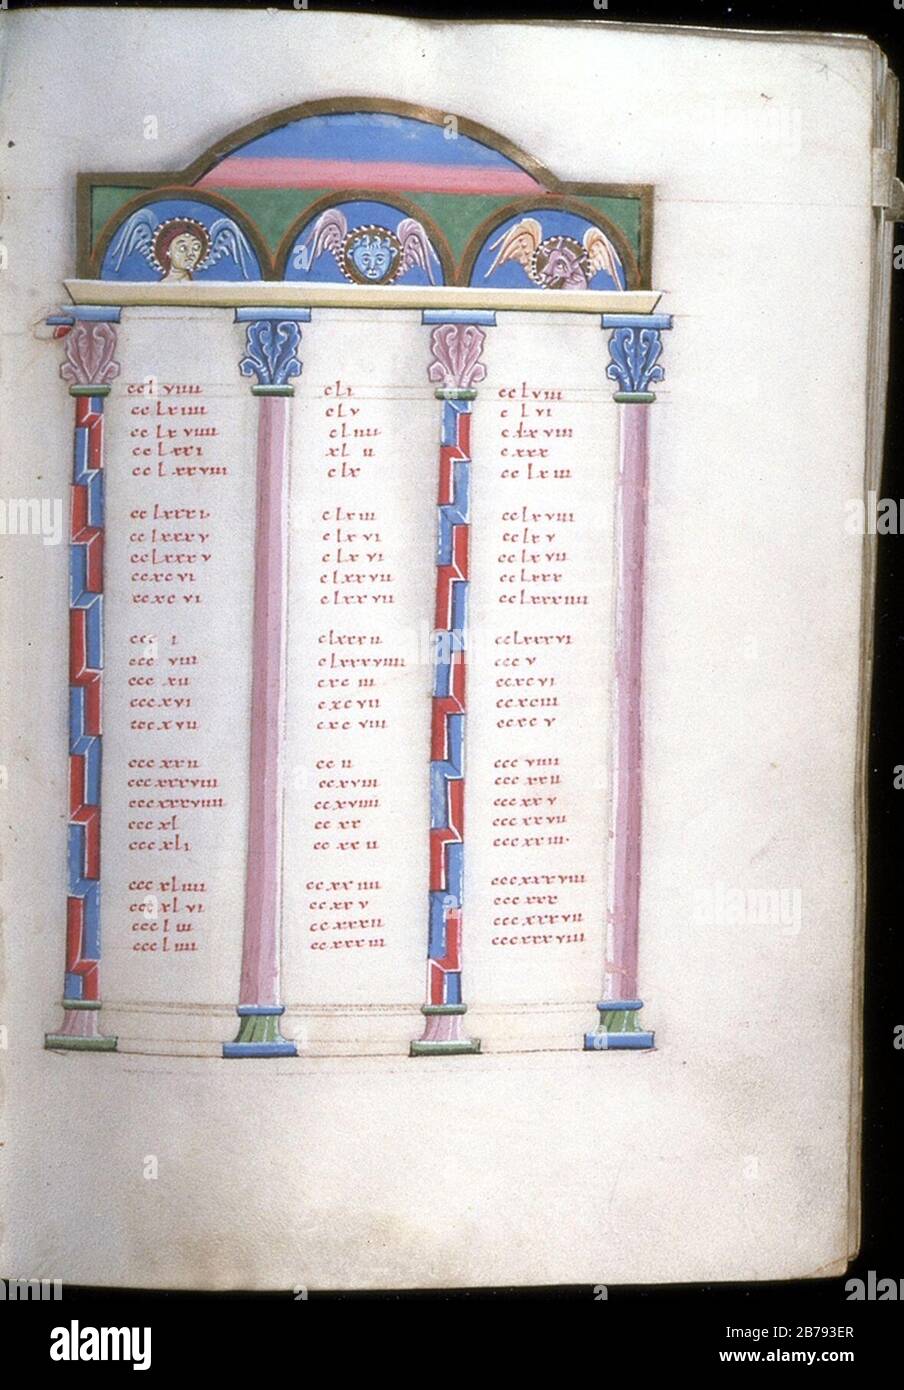 cclviiii cli cclviii
cclxiiii clv clvi
cclxviiii cliiii clxviii
cclxxi xlii cxxx
cclxxviii clx cclxiii
cclxxxi clxiii cclxviii
cclxxxv clxvi cclxv
cclxxxv clxvi cclxvii
ccxcvi clxxvii cclxxx
ccxcvi clxxvii cclxxxiiii
ccci clxxxii cclxxxvi
cccviii clxxxviiii cccv
cccxii cxciii ccxcvi
cccxvi cxcvii ccxciii
cccxvii cxcviii ccxcv
cccxxii ccii cccviiii
cccxxxviii ccxviii cccxxii
cccxxxviiii ccxviiii cccxxv
cccxl ccxx cccxxvii
cccxli ccxxii cccxxiii
cccxliiii ccxxiiii cccxxxviii
cccxlvi ccxxv cccxxx
cccliii ccxxxii cccxxxvii
cccliiii ccxxxiii cccxxxviii
alamy
Image ID: 2B793ER
www.alamy.com